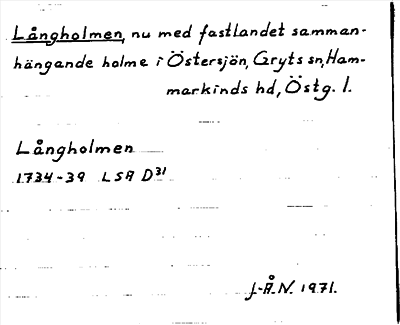 Långholmen, nu med fastlandet samman-
hängande holme i Östersjön, Gryts sn, Ham-
markinds hd, Östg. l.
Långholmen
1734-39 LSA D31
J-Å.N. 1971.